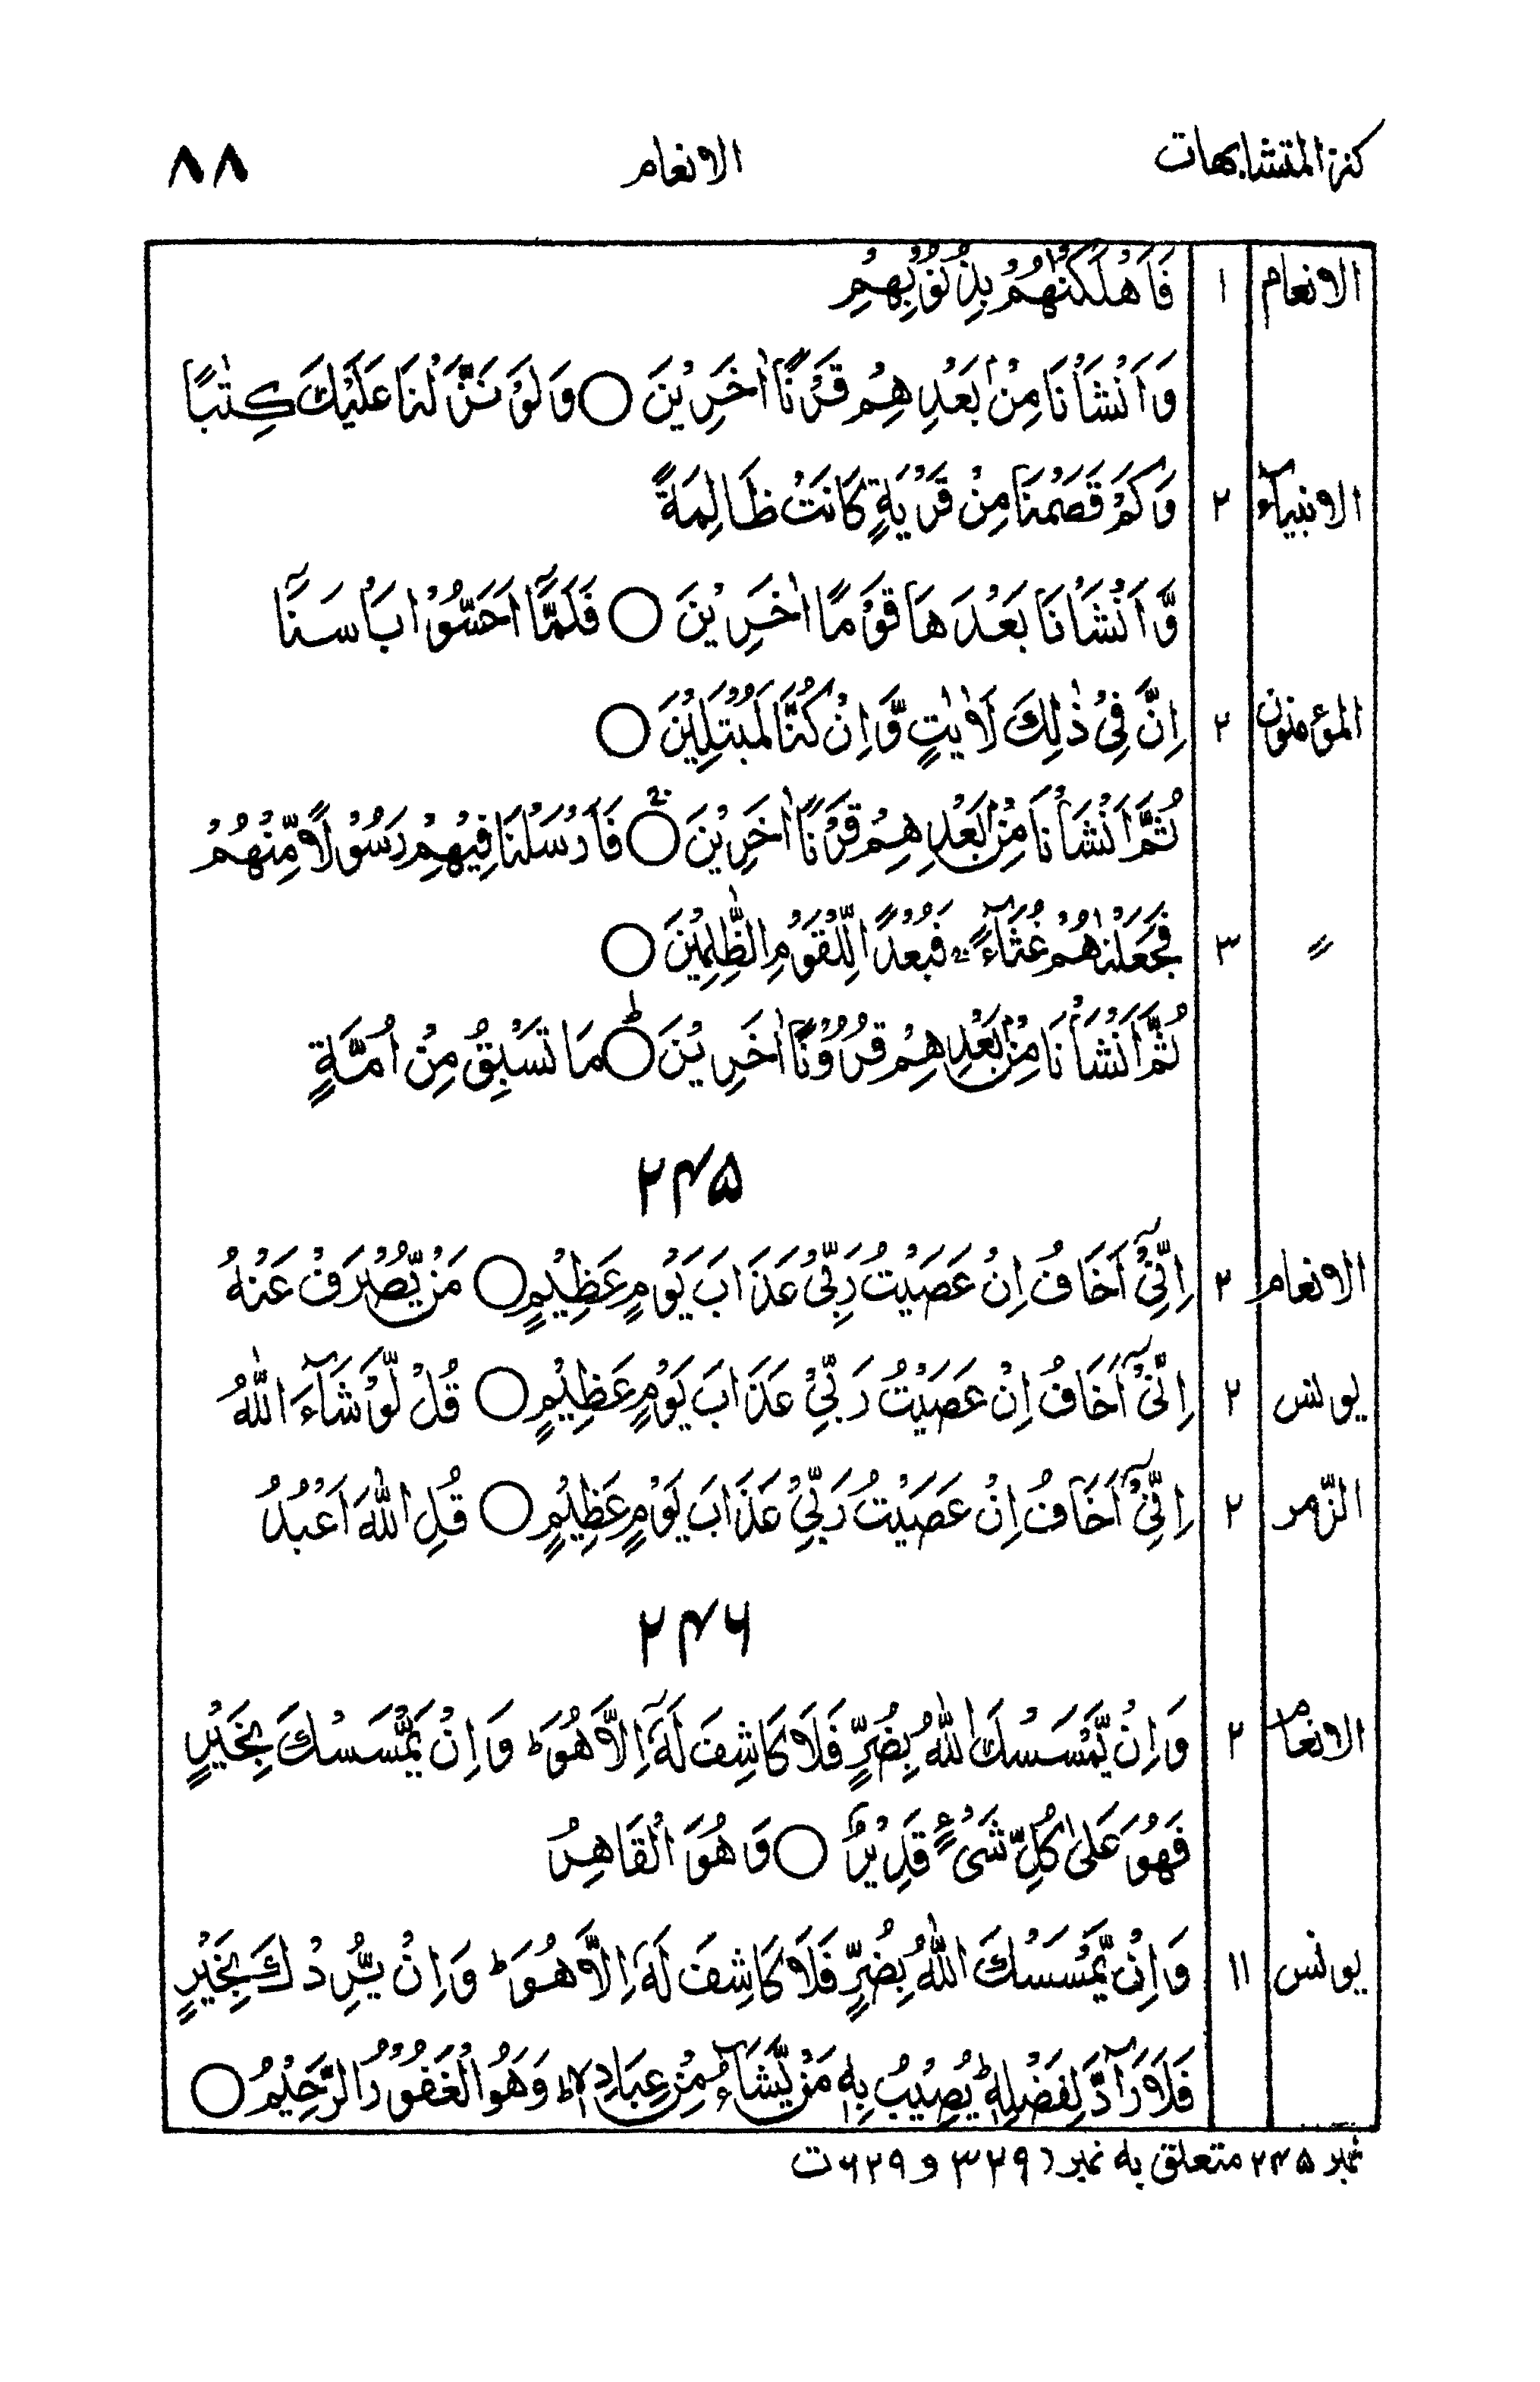 كنز المتشابهات الانعام ٨٨
الانعام ١ فَاَهْلَكْنٰهُمْ بِذُنُوْبِهِمْ
وَاَنْشَاْنَا مِنْۢ بَعْدِهِمْ قَرْنًا اٰخَرِيْنَ ○ وَلَوْ نَزَّلْنَا عَلَيْكَ كِتٰبًا
الانبيآء ٢ وَكَمْ قَصَمْنَا مِنْ قَرْيَةٍ كَانَتْ ظَالِمَةً
وَّاَنْشَاْنَا بَعْدَهَا قَوْمًا اٰخَرِيْنَ ○ فَلَمَّآ اَحَسُّوْا بَاْسَنَآ
المؤمنون ٢ اِنَّ فِيْ ذٰلِكَ لَاٰيٰتٍ وَّاِنْ كُنَّا لَمُبْتَلِيْنَ ○
ثُمَّ اَنْشَاْنَا مِنْۢ بَعْدِهِمْ قَرْنًا اٰخَرِيْنَ ○ فَاَرْسَلْنَا فِيْهِمْ رَسُوْلًا مِّنْهُمْ
〃 ٣ فَجَعَلْنٰهُمْ غُثَآءً ۚ فَبُعْدًا لِّلْقَوْمِ الظّٰلِمِيْنَ ○
ثُمَّ اَنْشَاْنَا مِنْۢ بَعْدِهِمْ قُرُوْنًا اٰخَرِيْنَ ○ؕ مَا تَسْبِقُ مِنْ اُمَّةٍ
۲۴۵
الانعام ٢ اِنِّيْٓ اَخَافُ اِنْ عَصَيْتُ رَبِّيْ عَذَابَ يَوْمٍ عَظِيْمٍ ○ مَنْ يُّصْرَفْ عَنْهُ
يونس ٢ اِنِّيْٓ اَخَافُ اِنْ عَصَيْتُ رَبِّيْ عَذَابَ يَوْمٍ عَظِيْمٍ ○ قُلْ لَّوْ شَآءَ اللّٰهُ
الزّمر ٢ اِنِّيْٓ اَخَافُ اِنْ عَصَيْتُ رَبِّيْ عَذَابَ يَوْمٍ عَظِيْمٍ ○ قُلِ اللّٰهَ اَعْبُدُ
۲۴۶
الانعام ٢ وَاِنْ يَّمْسَسْكَ اللّٰهُ بِضُرٍّ فَلَا كَاشِفَ لَهٗٓ اِلَّا هُوَ ؕ وَاِنْ يَّمْسَسْكَ بِخَيْرٍ
فَهُوَ عَلٰى كُلِّ شَيْءٍ قَدِيْرٌ ○ وَهُوَ الْقَاهِرُ
يونس ١١ وَاِنْ يَّمْسَسْكَ اللّٰهُ بِضُرٍّ فَلَا كَاشِفَ لَهٗٓ اِلَّا هُوَ ؕ وَاِنْ يُّرِدْكَ بِخَيْرٍ
فَلَا رَآدَّ لِفَضْلِهٖ ؕ يُصِيْبُ بِهٖ مَنْ يَّشَآءُ مِنْ عِبَادِهٖ ؕ وَهُوَ الْغَفُوْرُ الرَّحِيْمُ ○
نمبر ۲۴۵ متعلق به نمبر ۳۲۹ و ۶۲۹ ت